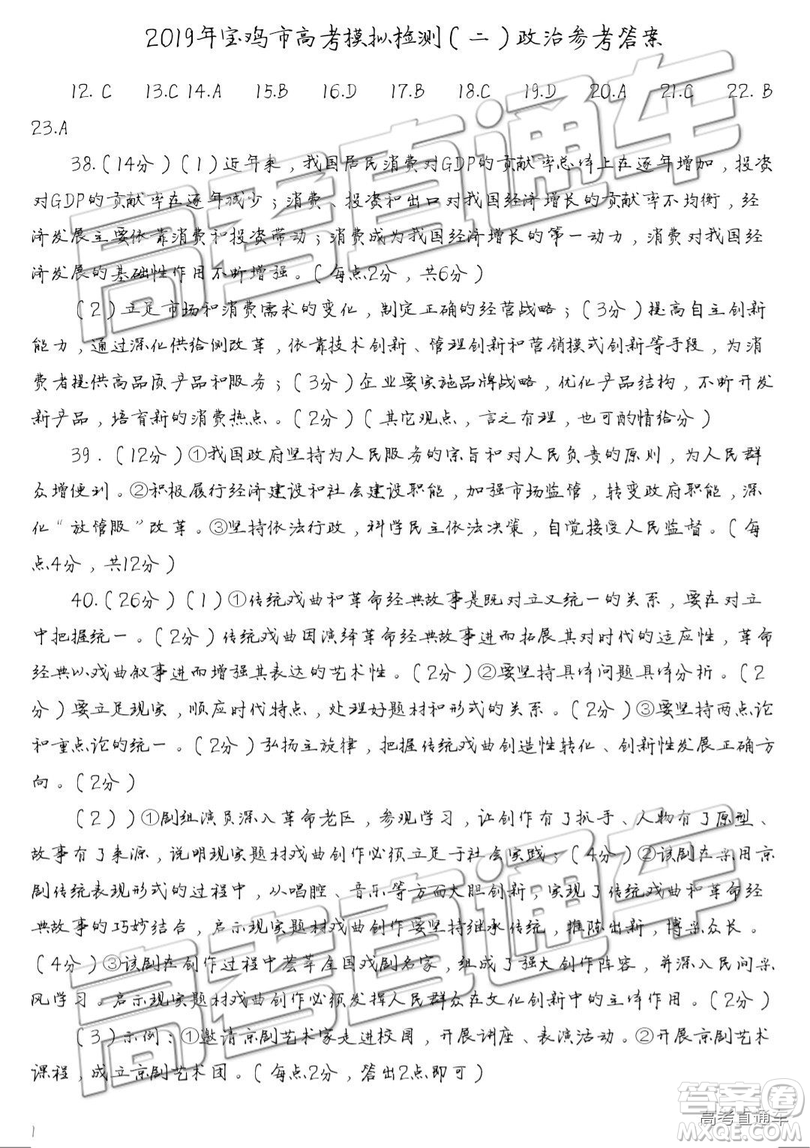 2019年宝鸡市高考模拟检测(二)政治参考答案
12. C 13.C 14.A 15.B 16.D 17.B 18.C 19.D 20.A 21.C 22. B
23.A
38.(14分)(1)近年来，我国居民消费对GDP的贡献率总体上在逐年增加，投资
对GDP的贡献率在逐年减少；消费、投资和出口对我国经济增长的贡献率不均衡，经
济发展主要依靠消费和投资带动；消费成为我国经济增长的第一动力，消费对我国经
济发展的基础性作用不断增强。(每点2分，共6分)
(2)立足市场和消费需求的变化，制定正确的经营战略；(3分)提高自主创新
能力，通过深化供给侧改革，依靠技术创新、管理创新和营销模式创新等手段，为消
费者提供高品质产品和服务；(3分)企业要实施品牌战略，优化产品结构，不断开发
新产品，培育新的消费热点。(2分)(其它观点，言之有理，也可酌情给分)
39．(12分)①我国政府坚持为人民服务的宗旨和对人民负责的原则，为人民群
众增便利。②积极履行经济建设和社会建设职能，加强市场监管，转变政府职能，深
化“放管服”改革。③坚持依法行政，科学民主依法决策，自觉接受人民监督。(每
点4分，共12分)
40.(26分)(1)①传统戏曲和革命经典故事是既对立又统一的关系，要在对立
中把握统一。(2分)传统戏曲因演绎革命故事进而拓展其对时代的适应性，革命
经典以戏曲叙事进而增强其表达的艺术性。(2分)②要坚持具体问题具体分析。(2
分)要立足现实，顺应时代特点，处理好题材和形式的关系。(2分)③要坚持两点论
和重点论的统一。(2分)弘扬主旋律，把握传统戏曲创造性转化、创新性发展正确方
向。(2分)
(2))①剧组演员深入革命老区，参观学习，让创作有了抓手、人物有了原型、
故事有了来源，说明现实题材戏曲创作必须立足于社会实践；(4分)②该剧在采用京
剧传统表现形式的过程中，从唱腔、音乐等方面大胆创新，实现了传统戏曲与革命经
典故事的巧妙结合，启示现实题材戏曲创作要坚持继承传统，推陈出新，博采众长。
(4分)③该剧在创作过程中荟萃全国戏剧名家，组成了强大创作阵容，并深入民间采
风学习。启示现实题材戏曲创作必须发挥人民群众在文化创新中的主体作用。(2分)
(3)示例：①邀请京剧艺术家走进校园，开展讲座、表演活动。②开展京剧艺术
课程，成立京剧艺术团。(每点2分，答出2点即可)
1
高考直通车
答案圈
高考直通车
MXQE.COM